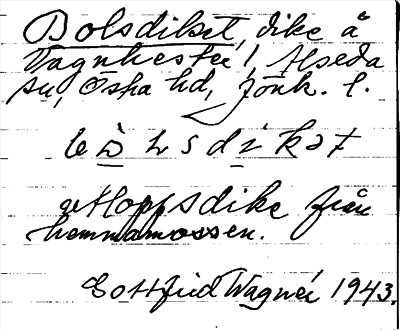 Bolsdiket, dike å
Vagnhester, Alseda
sn, Östra hd, Jönk. l.
bò̱lsdi̱kət
utloppsdike från
hemmamossen.
Gottfrid Wagnér 1943.